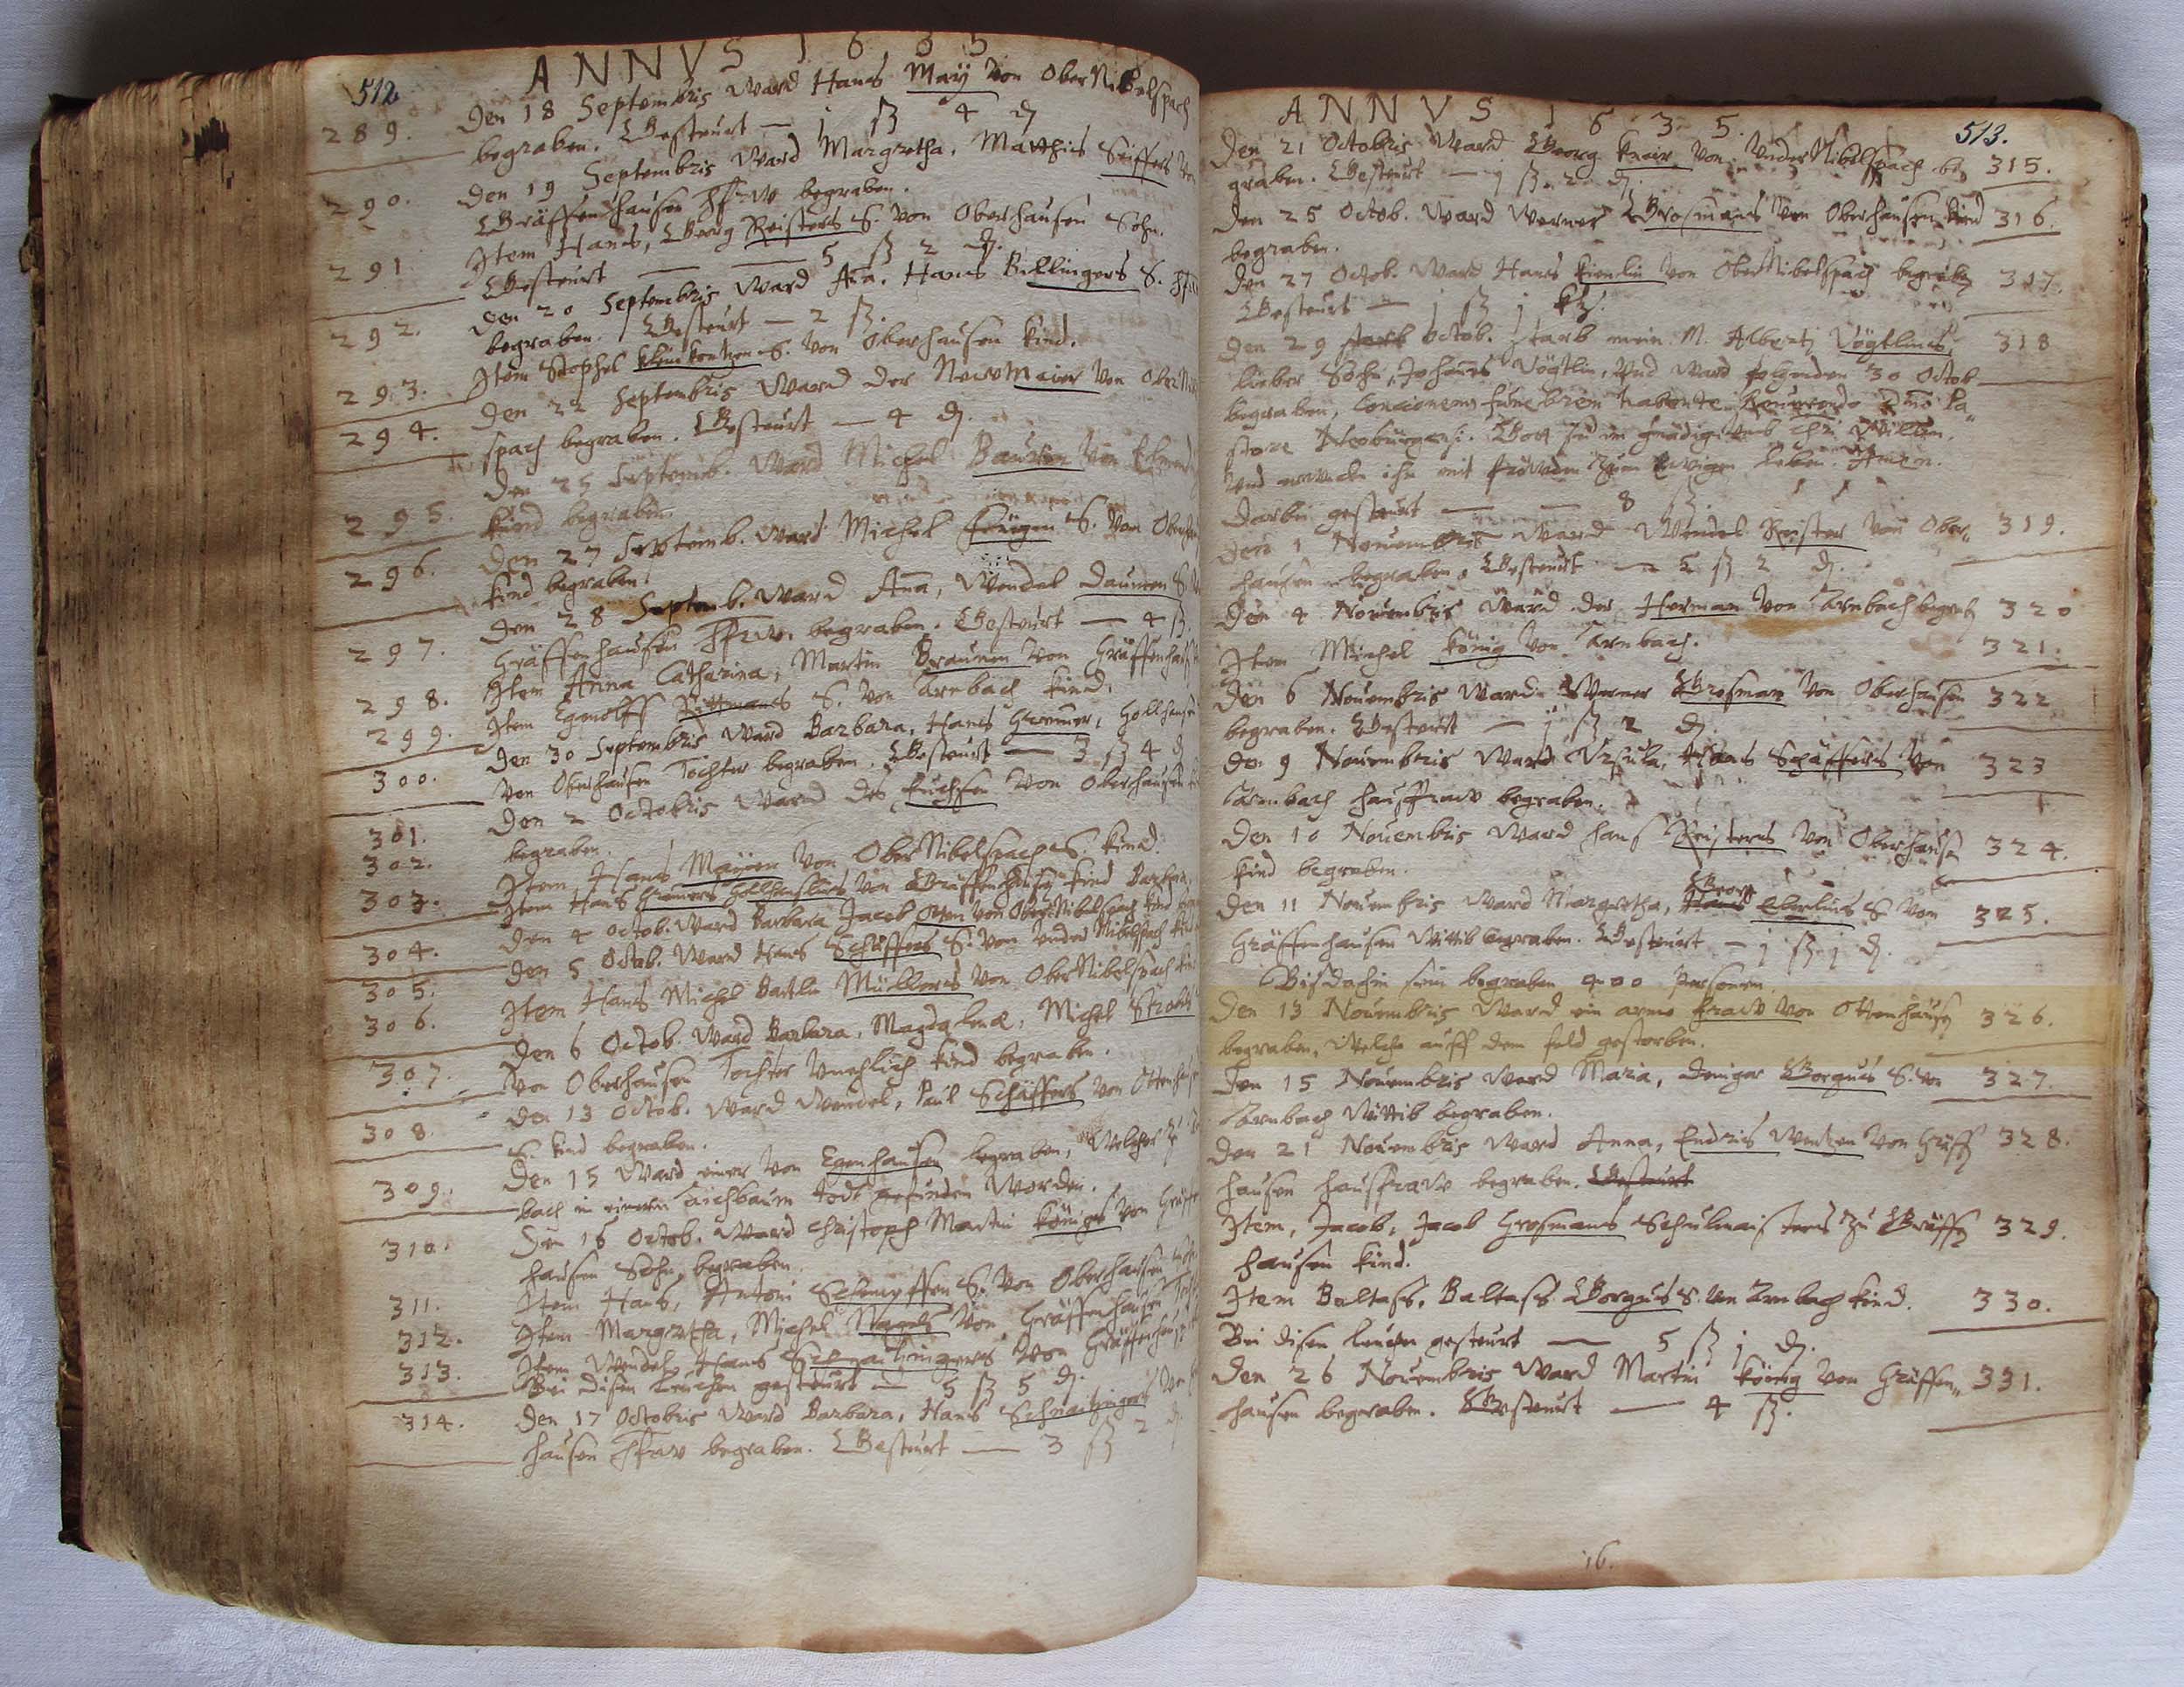 512
ANNVS 1635
289. Den 18 Septembris ward Hans Maÿ von OberNibelspach
begraben. Gesteurt — j ß 4 d.
290. Den 19 Septembris ward Margretha, Matthis Seiffers
Gräffenhausen begraben.
291. Item Hans, Georg Reisters S. von Oberhausen Sohn.
Gesteurt — 5 ß 2 d.
292. Den 20 Septembris ward Aña, Hans Billingers S.
begraben. Gesteurt — 2 ß.
293. Item Stophel S. von Oberhausen kind.
294. Den 22 Septembris ward der Newmaier von OberNi
spach begraben. Gesteurt — 4 d.
295. Den 25 Septemb. ward Michel Bauren von
kind begraben.
296. Den 27 Septemb. ward Michel S. von Oberhau
kind begraben.
297. Den 28 Septemb. ward Aña, Wendel Dauren S.
Gräffenhausen begraben. Gesteurt — 4 ß.
298. Item Anna Catharina, Martin Braunen von Gräffenhaus
299. Item Egenolff S. von Arnbach kind.
300. Den 30 Septembris ward Barbara, Hans
von Oberhausen Tochter begraben. Gesteurt — 3 ß 4 d
301. Den 2 Octobris ward des Fuchsen von Oberhausen
begraben.
302. Item, Hans Maÿen von OberNibelspach S. kind.
303. Item Hans von Gräffenhausen kind Barbara.
304. Den 4 Octob. ward Barbara Jacob von OberNibelspach kind
305. Den 5 Octob. ward Hans Schäffers S. von VnderNibelspach kind
306. Item Hans Michel Bastlin Müllers von OberNibelspach kind
307. Den 6 Octob. ward Barbara, Magdalenæ, Michel
von Oberhausen Tochter vnehlich kind begraben.
308. Den 13 Octob. ward Wendel, Paul Schäffers von Ottenhausen
S. kind begraben.
309. Den 15 ward einer von Egenhausen begraben, welcher zu
bach in einem todt gefunden worden.
310. Den 16 Octob. ward Christoph Martin Königs von Gräffen
hausen Sohn begraben.
311. Item Hans, Antoni S. von Oberhausen
312. Item Margretha, Michel Nagels von Gräffenhausen
313. Item Wendel, Hans Schnaitingers von Gräffenhausen
Bei disen leuchen gesteurt — 5 ß 5 d.
314. Den 17 Octobris ward Barbara, Hans Schnaitingers von
hausen begraben. Gesteurt — 3 ß 2 d
ANNVS 1635.
513.
Den 21 Octobris ward Georg Knair von VnderNibelspach be= 315.
graben. Gesteurt — j ß. 2 d.
Den 25 Octob. ward Werner Grosmans von Oberhausen kind 316.
begraben.
Den 27 Octob. ward Hans Kienlin von OberNibelspach begraben 317.
Gesteurt — j ß j
Den 29 Octob. starb mein M. Alberti Vögtlins, 318
lieber Sohn, Johannes Vögtlin, vnd ward folgenden 30 Octob
begraben, concionem funebrem habente Reuerendo Dno Pa=
store Neobürgensi. Gott sei im gnädig vmb Chri willen,
vnd erwecke ihn mit fröwden zum ewigen leben. Amen.
Darbei gesteurt — 8 ß.
Den 1 Nouembris ward Wendel Reister von Ober= 319.
hausen begraben. Gesteurt — 5 ß 2 d.
Den 4 Nouembris ward der Herman von Arnbach begraben 320
Item Michel König von Arnbach. 321.
Den 6 Nouembris ward Werner Grosman von Oberhausen 322
begraben. Gesteurt — j ß 2 d.
Den 9 Nouembris ward Vrsula, Hans Schäffers von 323
Arnbach hausfraw begraben.
Den 10 Nouembris ward Hans Reisters von Oberhausen 324.
kind begraben.
Den 11 Nouembris ward Margretha, Hans Georg Eberlins S. von 325.
Gräffenhausen Wittib begraben. Gesteurt — j ß j d.
Bisdahin sein begraben 400 Personen.
Den 13 Nouembris ward ein arme fraw von Ottenhausen 326.
begraben, welche auff dem feld gestorben.
Den 15 Nouembris ward Maria, Gorgus S. von 327.
Arnbach Wittib begraben.
Den 21 Nouembris ward Anna, Endris von Gräff= 328.
hausen hausfraw begraben. Gesteurt
Item, Jacob, Jacob Grosmans Schulmaisters zu Gräff= 329.
hausen kind.
Item Baltass, Baltass Gorgus S. von Arnbach kind. 330.
Bei disen leuchen gesteurt — 5 ß j d.
Den 26 Nouembris ward Martin König von Gräffen= 331.
hausen begraben. Gesteurt — 4 ß.
16.